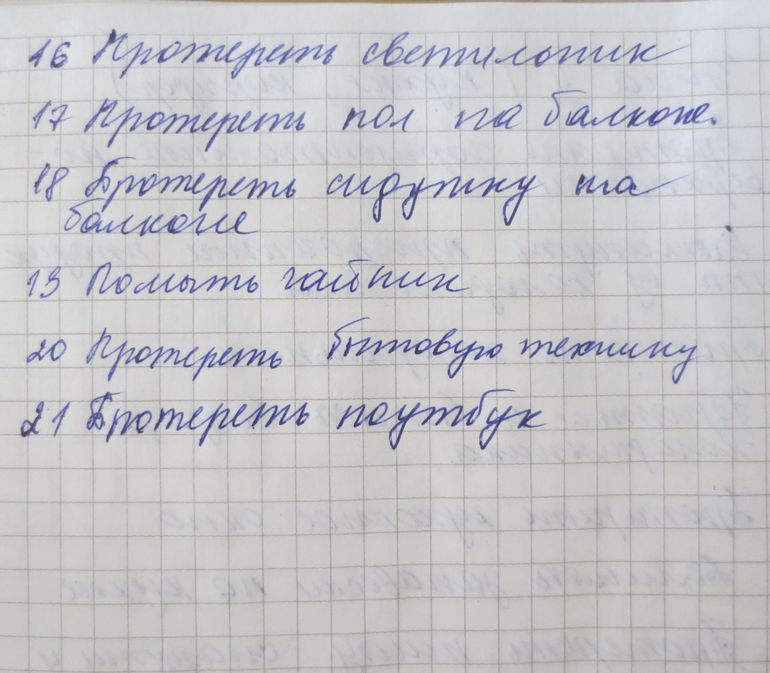 16 Протереть светильник
17 Протереть пол на балконе.
18 Протереть сидушку на
балконе
19 Помыть чайник
20 Протереть бытовую технику
21 Протереть ноутбук